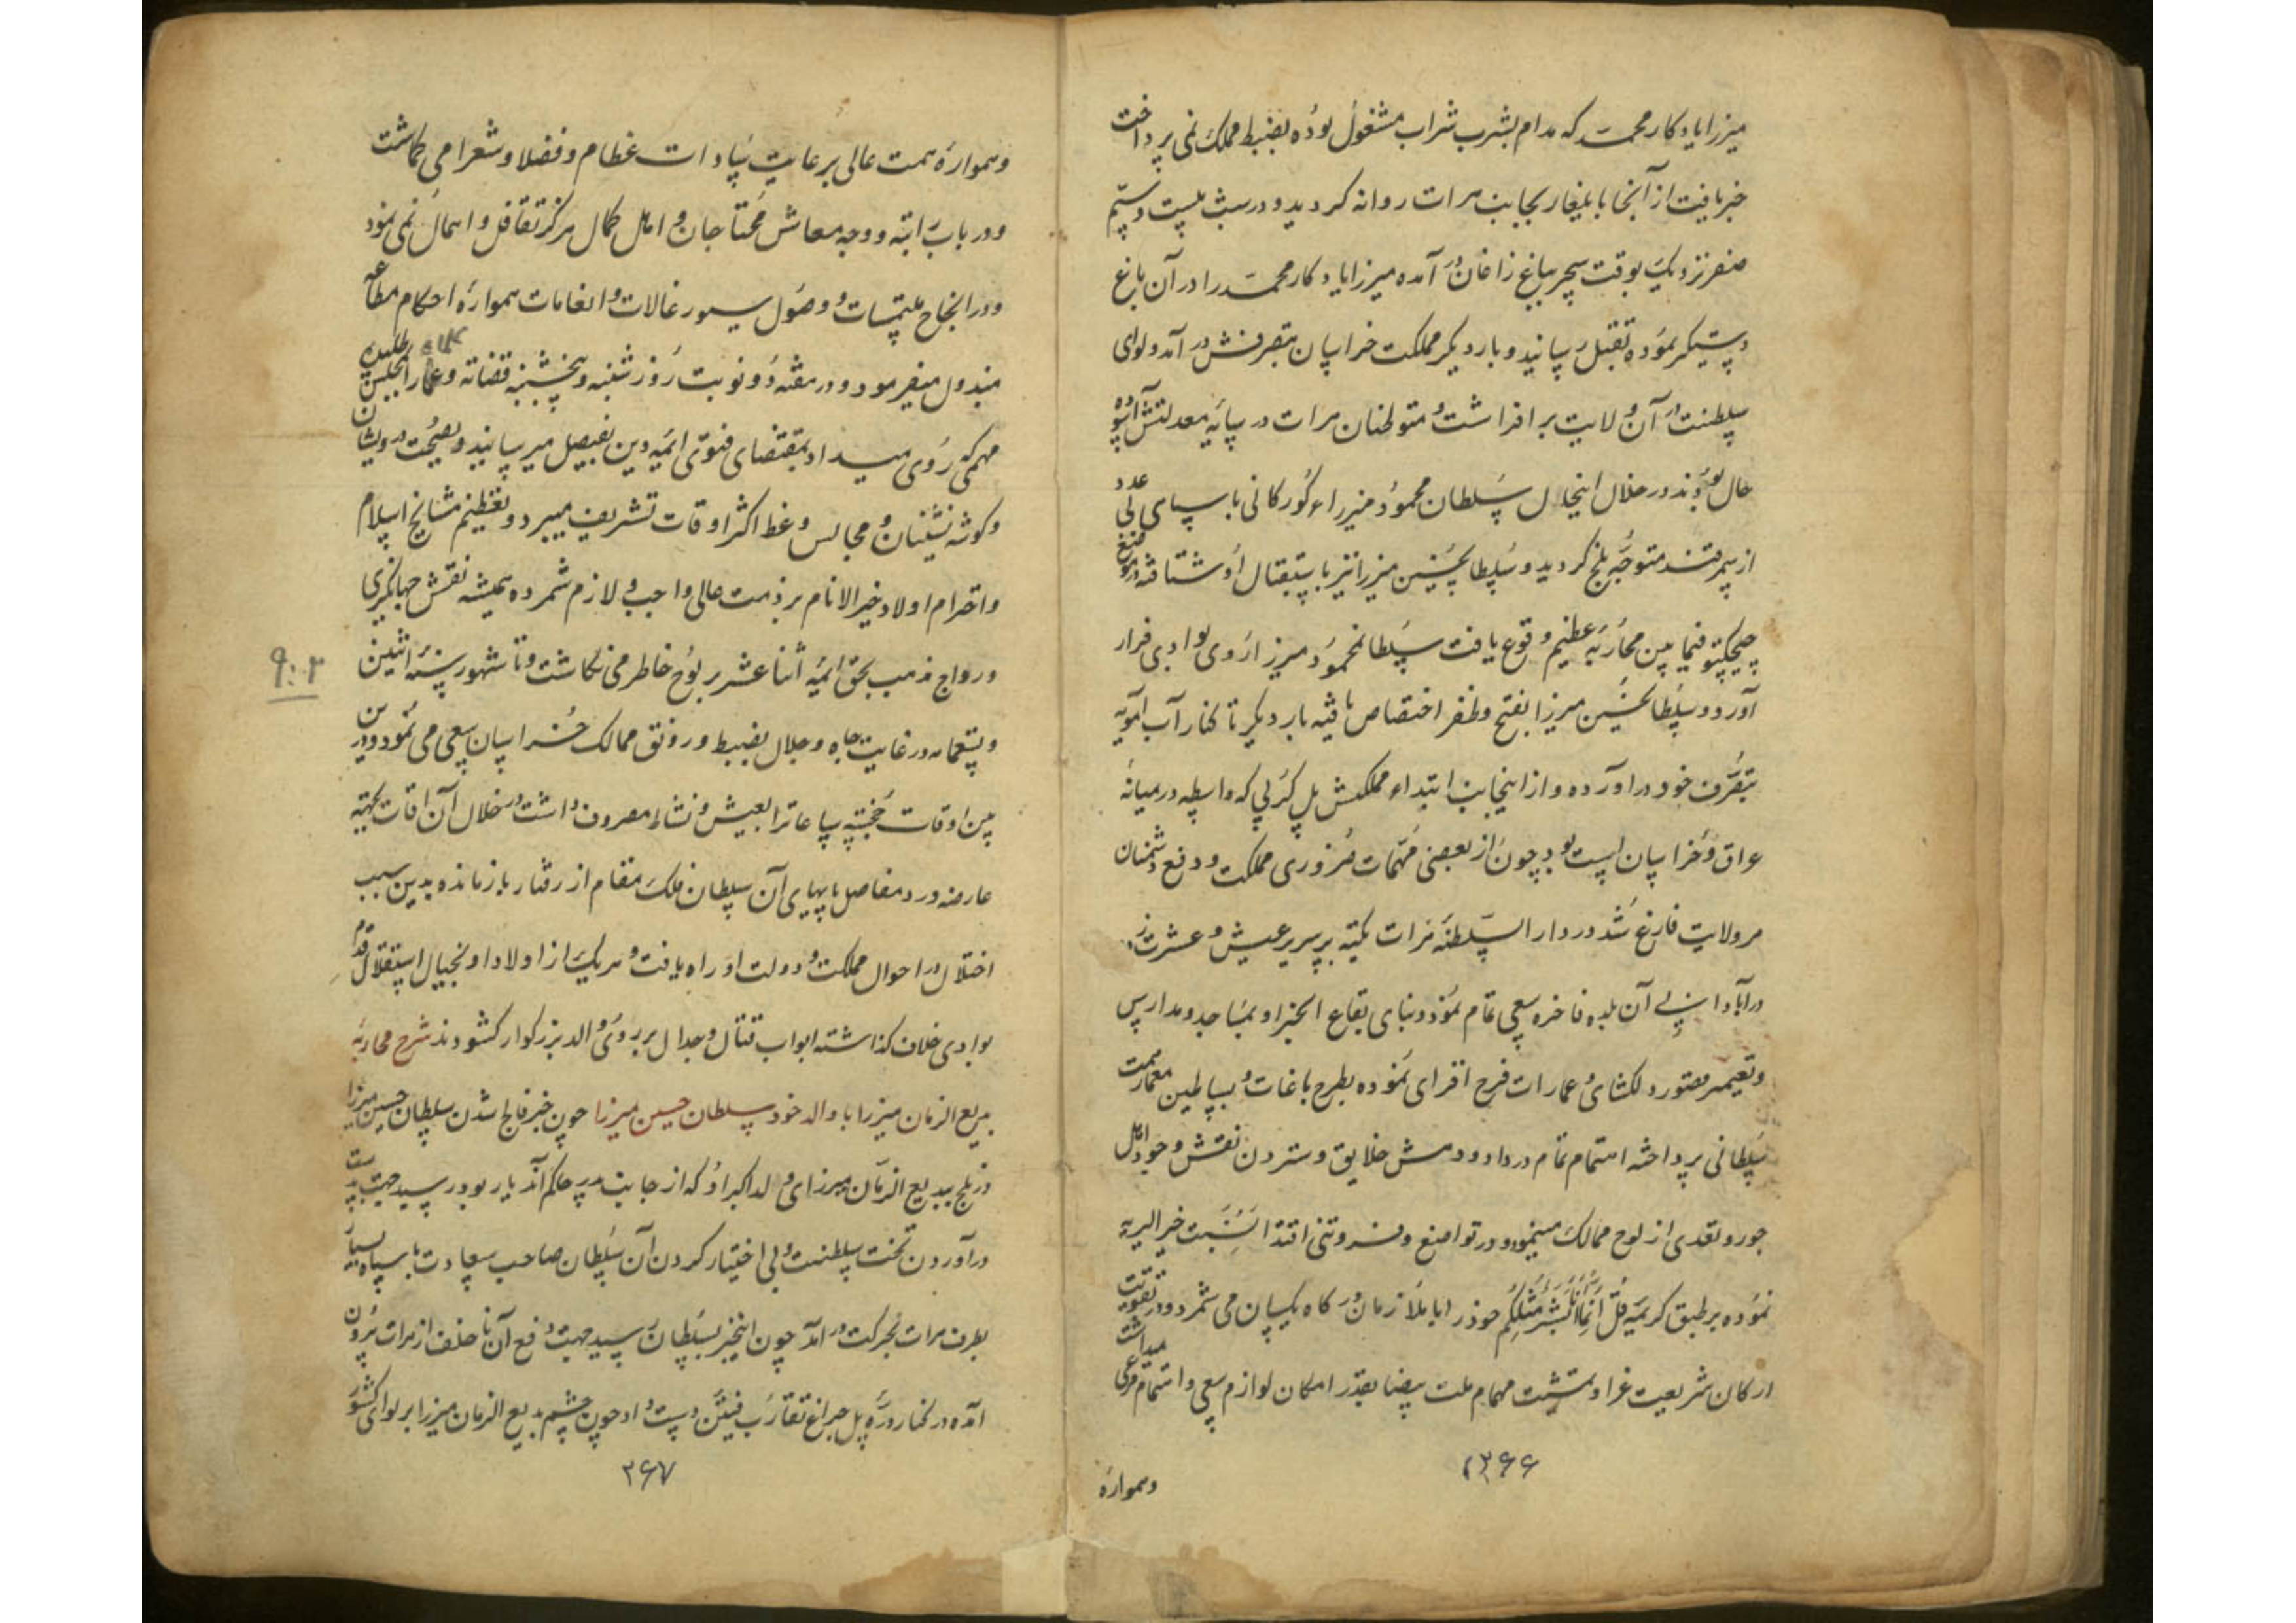 میرزا یادکار محمد که مدام بشرب شراب مشغول بوده بضبط مملکت نمی پرداخت
خبر یافت از آنجا بایلغار بجانب هرات روانه کردید و در شب بیست و سیّم
صفر نزدیک بوقت سحر بباغ زاغان در آمده میرزا یادکار محمد را در آن باغ
دستیکر نموده بقتل رسانید و بار دیکر مملکت خراسان بتصرفش در آمد و لوای
سلطنت در آن ولایت بر افراشت و متوطنان هرات در سایه معدلتش آسوده
حال بودند در خلال اینحال سلطان محمود میرزاء کورکانی با سپاهی بی عدد
از سمرقند متوجه بلخ کردید و سلطانحسین میرزا نیز باستقبال او شتافته در موضع
چیچکتو فیما بین محاربه عظیم وقوع یافت سلطانمحمود میرزا روی بوادی فرار
آورد و سلطانحسین میرزا بفتح و ظفر اختصاص یافته بار دیکر تا کنار آب آمویه
بتصرف خود در آورده و از اینجانب ابتداء مملکتش پل کرپی که واسطه در میانه
عراق و خراسان است بود چون از بعضی مهمات ضروری مملکت و دفع دشمنان
هر ولایت فارغ شد در دار السلطنه هرات تکیه بر سریر عیش و عشرت زد
در آبادانی آن بلده فاخره سعی تمام نمود و بنای بقاع الخیر او بمساجد و مدارس
و تعمیر قصور دلکشای و عمارات فرح افزای نموده بطرح باغات و بساطین معمار همت
سلطانی پرداخته اهتمام تمام در داد و دهش خلایق و ستردن نقش وجود اهل
جور و تعدی از لوح ممالک مینمود و در تواضع و فروتنی اقتدا بسنت خیر البریه
نموده بر طبق کریمه قُل اِنَّما اَنَا بَشَرٌ مِثلُکُم خود را با ملازمان درکاه یکسان می شمرد و در تقویت
ارکان شریعت غرا و تمشیت مهام ملت بیضا بقدر امکان لوازم سعی و اهتمام مرعی میداشت
۲۶۶
وهمواره
وهمواره همت عالی بر عایت سادات عظام و فضلا و شعرا می کماشت
و در باب راتبه و وجه معاش محتاجان و اهل کمال هرکز تغافل و اهمال نمی نمود
و در انجاح ملتمسات و وصول سیورغالات و انعامات همواره احکام مطاعه
مبذول میفرمود و در هفته دو نوبت روز شنبه و پنجشنبه قضاته و علما را بمجلس طلبیده
مهمی که روی میداد بمقتضای فتوی ائمه دین بفیصل میرسانید و بصحبت درویشان
و کوشه نشینان و مجالس وعظ اکثر اوقات تشریف میبرد و تعظیم مشایخ اسلام
و احترام اولاد خیر الانام بر ذمت عالی واجب و لازم شمرده همیشه نقش جهانکیری
و رواج مذهب بحق ائمه اثنا عشر بر لوح خاطر می نکاشت و تا شهور سنه اثنین
۹۰۲
و تسعمایه در غایت جاه و جلال بضبط و رونق ممالک خراسان سعی می نمود و در این
بین اوقات خجسته ساعات را بعیش و نشاء مصروف داشت در خلال آن اوقات نکبته
عارضه درد مفاصل بپایهای آن سلطان فلک مقام از رفتار بازمانده بدین سبب
اختلال در احوال مملکت و دولت او راه یافت و هر یک از اولاد او بخیال استقلال قدم
بوادی خلاف کذاشته ابواب قتال و جدال بر روی والد بزرکوار کشودند شرح محاربه
بدیع الزمان میرزا با والد خود سلطان حسین میرزا چون خبر فالج شدن سلطان حسین میرزا
در بلخ ببدیع الزمان میرزای ولد اکبر او که از جانب پدر حاکم آندیار بود رسید جهت بدست
در آوردن تخت سلطنت و بی اختیار کردن آن سلطان صاحب سعادت با سپاه بسیار
بطرف هرات بحرکت در آمد چون اینخبر بسلطان رسید جهت دفع آن نا خلف از هرات برون
آمده در کنار دره پل چراغ تقارب فیئتین دست داد چون چشم بدیع الزمان میرزا بر لوای کشور
۲۶۷